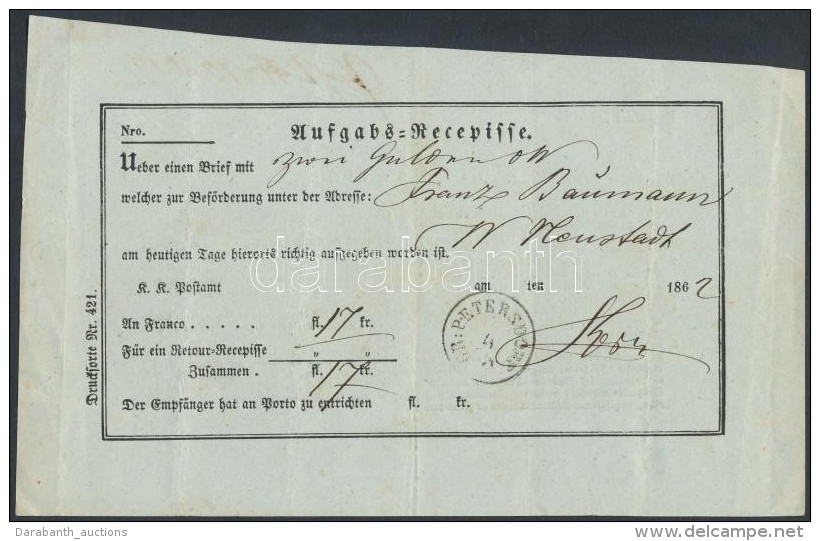 Nro. Aufgabs=Recepisse.
Ueber einen Brief mit zwei Gulden öW
welcher zur Beförderung unter der Adresse: Franz Baumann
W Neustadt
am heutigen Tage hierorts richtig aufgegeben worden ist.
K. K. Postamt am ten 1862
GR: PETERSDORF
4
An Franco . . . . . fl. 17 kr.
Für ein Retour-Recepisse " "
Zusammen . fl. 17 kr.
Der Empfänger hat an Porto zu entrichten fl. kr.
Drucksorte Nr. 421.
darabanth
Darabanth_auctions